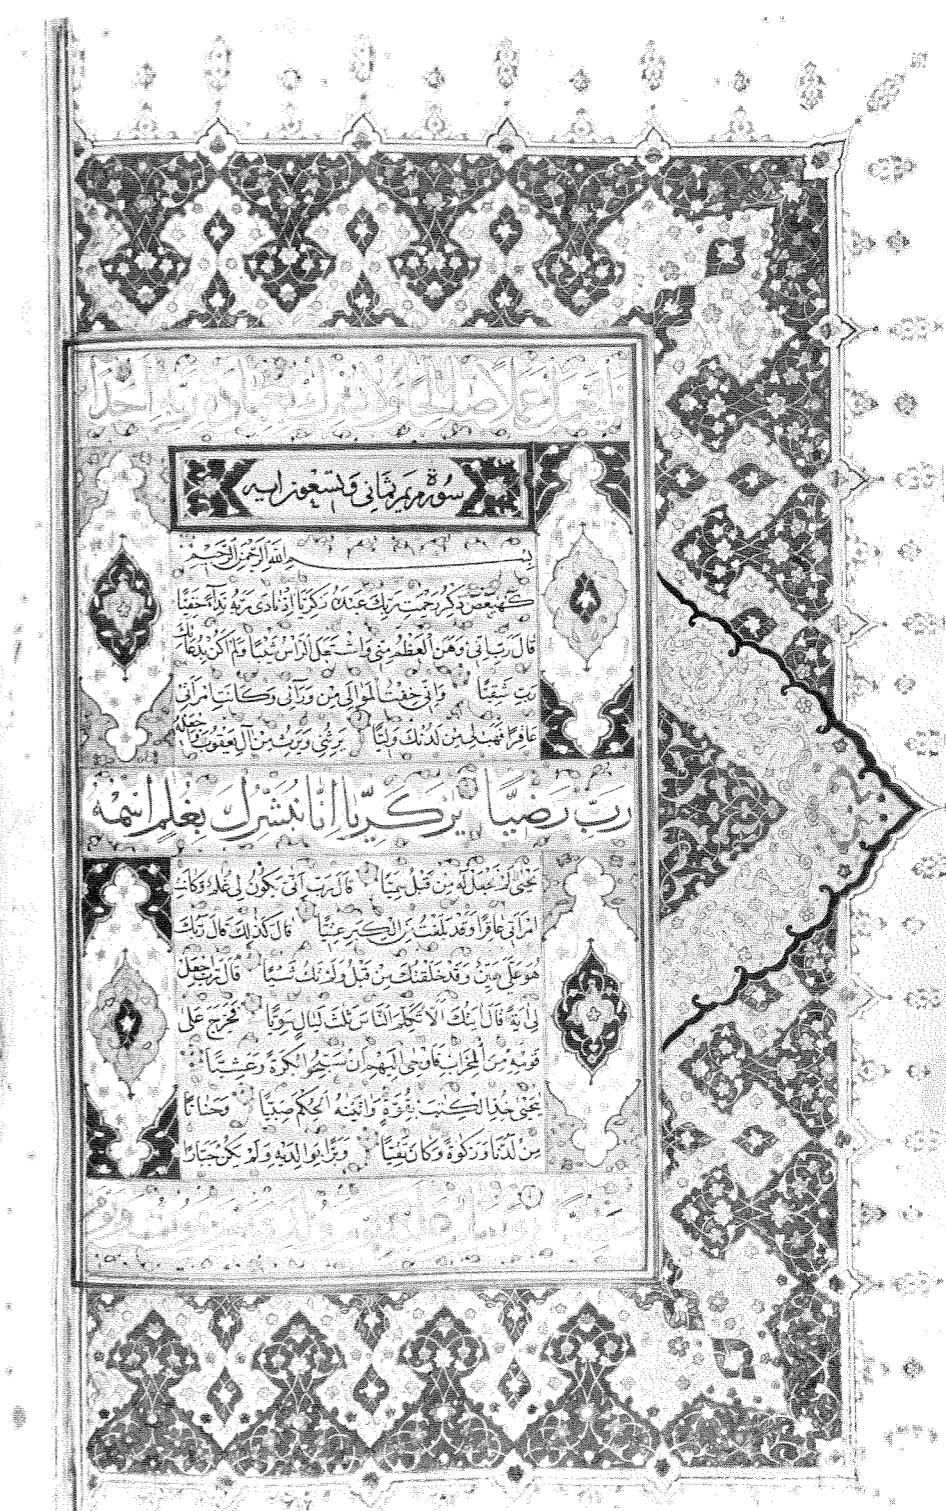 فليعمل عملا صالحا ولا يشرك بعبادة ربه احدا
سورة مريم ثماني وتسعون آيه
بسم الله الرحمن الرحيم
كهيعص ذكر رحمت ربك عبده زكريا اذ نادى ربه ندآء خفيا
قال رب اني وهن العظم مني واشتعل الرأس شيبا ولم اكن بدعائك
رب شقيا واني خفت الموالي من ورآئى وكانت امرأتى
عاقرا فهب لي من لدنك وليا يرثني ويرث من آل يعقوب واجعله
رب رضيا يزكريا انا نبشرك بغلم اسمه
يحيى لم نجعل له من قبل سميا قال رب انى يكون لي غلم وكانت
امرأتي عاقرا وقد بلغت من الكبر عتيا قال كذلك قال ربك
هو على هين وقد خلقتك من قبل ولم تك شيئا قال رب اجعل
لي آية قال آيتك الا تكلم الناس ثلث ليال سويا فخرج على
قومه من المحراب فاوحى اليهم ان سبحوا بكرة وعشيا
ييحيى خذ الكتب بقوة وآتينه الحكم صبيا وحنانا
من لدنا وزكوة وكان تقيا وبرا بوالديه ولم يكن جبارا